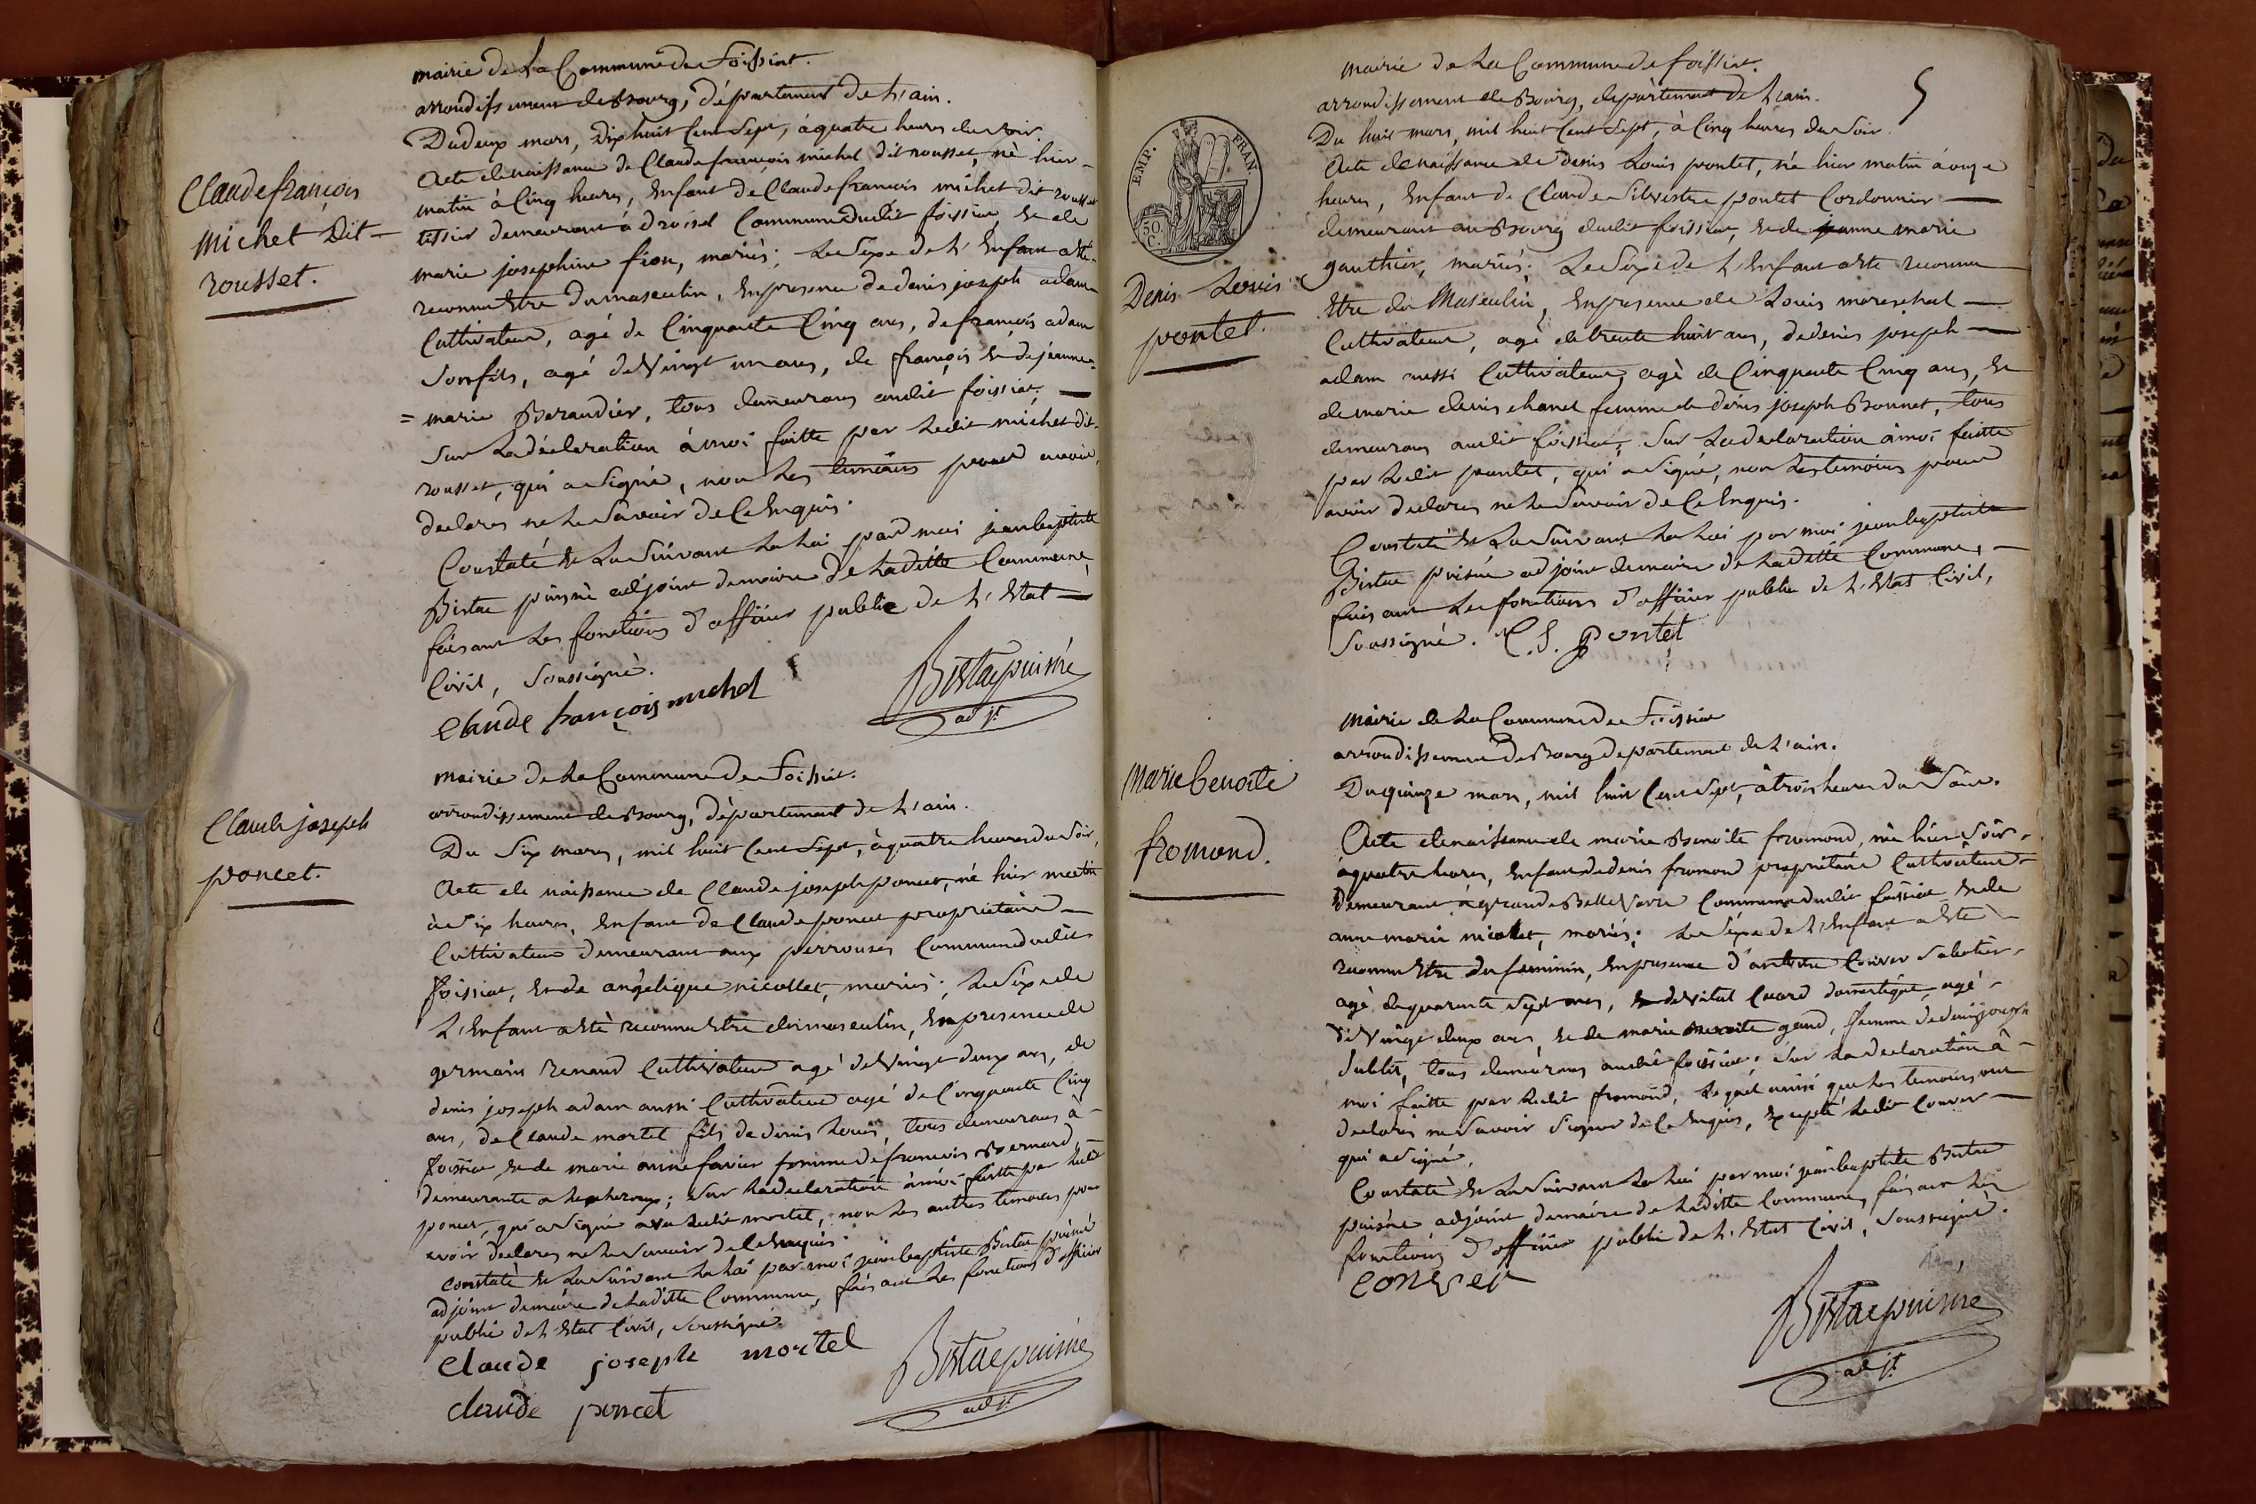 mairie de La Commune de Foissiat.
arrondissement de Bourg, département de L'ain.
Du deux mars, dix huit Cent Sept, à quatre heures du Soir
Acte de naissance de Claude françois michel dit rousset, né hier
matin à Cinq heures, Enfant de Claude françois michet dit rousset
tissier demeurant à Commune dudit foissiat, Et de
marie josephine fion, mariés; Le Sexe de L'Enfant a été
reconnu Etre du masculin, En presence de denis joseph adam
Cultivateur, agé de Cinquante Cinq ans, de françois adam
Son fils, agé de Vingt un ans, de françois Et de jeanne
= marie Beraudier, tous demeurans audit foissiat,
Sur La déclaration à moi faitte par Ledit michet dit
rousset, qui a Signé, non Les temoins pour avoir
declarés ne Le Savoir de Ce Enquis.
Constaté Et Lu Suivant La Loi par moi jean baptiste
Bistac puisné adjoint de maire de Laditte Commune,
faisant Les fonctions d'officier public de L'Etat
Civil, Soussigné.
Claude françois michel
Bistac puisné
adjt
Claude françois
Michet Dit
rousset.
mairie de La Commune de Foissiat.
arrondissement de Bourg, département de L'ain.
Du Six mars, mil huit Cent Sept, à quatre heures du Soir,
Acte de naissance de Claude joseph poncet, né hier matin
à Six heures, Enfant de Claude poncet propriétaire
Cultivateur demeurant aux perrouses Commune dudit
foissiat, Et de angélique nicollet, mariés; Le Sexe de
L'Enfant a été reconnu Etre du masculin, En presence de
germain Renaud Cultivateur agé de Vingt deux ans, de
denis joseph adam aussi Cultivateur agé de Cinquante Cinq
ans, de Claude mortel fils de denis Louis, tous demeurans à
foissiat Et de marie anne favier femme de françois Bernard,
demeurante a; Sur La declaration à moi faitte par Ledit
poncet, qui a Signé avec Ledit mortel, non Les autres temoins pour
avoir declarés ne Le Savoir de Ce Enquis.
Constaté Et Lu Suivant La Loi par moi jean baptiste Bistac puisné
adjoint de maire de Laditte Commune, faisant Les fonctions d'officier
public de L'Etat Civil, Soussigné.
Claude joseph mortel
claude poncet
Bistac puisné
adjt
Claude joseph
poncet.
5
mairie de La Commune de foissiat.
arrondissement de Bourg, département de L'ain.
Du huit mars, mil huit Cent Sept, à Cinq heures du Soir.
Acte de naissance de Denis Louis pontet, né hier matin à onze
heures, Enfant de Claude Silvestre pontet Cordonnier
demeurant au Bourg dudit foissiat, Et de jeanne marie
gauthier, mariés; Le Sexe de L'Enfant a été reconnu
Etre du Masculin, En presence de Louis mareschal
Cultivateur, agé de trente huit ans, de denis joseph
adam aussi Cultivateur agé de Cinquante Cinq ans, Et
de marie denis chanel femme de denis joseph Bonnet, tous
demeurans audit foissiat, Sur La declaration à moi faitte
par Ledit pontet, qui a Signé, non Les temoins pour
avoir declarés ne Le Savoir de Ce Enquis.
Constaté Et Lu Suivant La Loi par moi jean baptiste
Bistac puisné adjoint de maire de Laditte Commune,
faisant Les fonctions d'officier public de L'Etat Civil,
Soussigné. C. S. pontet
EMP. FRAN.
50.
C.
Denis Louis
pontet.
mairie de La Commune de Foissiat
arrondissement de Bourg département de L'ain.
Du quinze mars, mil huit Cent Sept, à trois heures du Soir.
Acte de naissance de marie Benoite fromond, née hier Soir
à quatre heures, Enfant de denis fromond propriétaire Cultivateur
demeurant à grande Commune dudit foissiat Et de
anne marie nicollet, mariés; Le Sexe de L'Enfant a été
reconnu Etre du feminin, En presence d'antoine Convert Sabotier
agé de quarante Sept ans, de Vital domestique, agé
de Vingt deux ans, Et de marie Benoite gand, femme de denis joseph
Sublet, tous demeurans audit foissiat; Sur La declaration à
moi faitte par Ledit fromond, Lequel ainsi que Les temoins ont
declarés ne Savoir Signer de Ce Enquis, Excepté Ledit Conver
qui a Signé.
Constaté Et Lu Suivant La Loi par moi jean baptiste Bistac
puisné adjoint de maire de Laditte Commune, faisant Les
fonctions d'officier public de L'Etat Civil, Soussigné.
Conver
Bistac puisné
adjt
Marie Benoite
fromond.